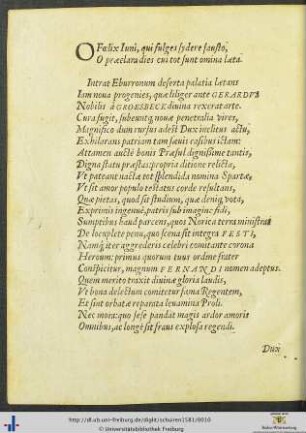 O Fœlix Iuni, qui fulges sydere fausto,
O præclara dies cui tot sunt omina læta.
Intrat Eburronum deserta palatia lætans
Iam noua progenies, quæ liliger ante GERARDVS
Nobilis à GROESBECK diuina rexerat arte.
Cura fugit, subeuntq; nouæ penetralia vires,
Magnifico dum rursus adest Dux inclitus actu,
Exhilarans patriam tam sæuis casibus ictam:
Attamen auctè bonis Præsul dignissime tantis,
Digna statu præstas: propria ditione relicta,
Vt pateant nacta tot splendida nomina Spartæ,
Vt sit amor populo testatus corde resultans,
Quæ pietas, quod sit studium, quæ deniq; vota,
Exprimis ingenuè, patrijs sub imagine fidi,
Sumptibus haud parcens, quot Norica terra ministrat
De locuplete penu, quo scena sit integra FESTI,
Namq; iter aggrederis celebri comitante corona
Heroum: primus quorum tuus ordine frater
Conspicitur, magnum FERNANDI nomen adeptus.
Quem merito traxit diuinæ gloria laudis,
Vt bona delectum comitetur fama Regentem,
Et sint orbatæ reparata leuamina Proli.
Nec mora: quo sese pandat magis ardor amoris
Omnibus, ac longè sit fraus explosa regendi.
Dux
http://dl.ub.uni-freiburg.de/diglit/schuiren1581/0010
© Universitätsbibliothek Freiburg